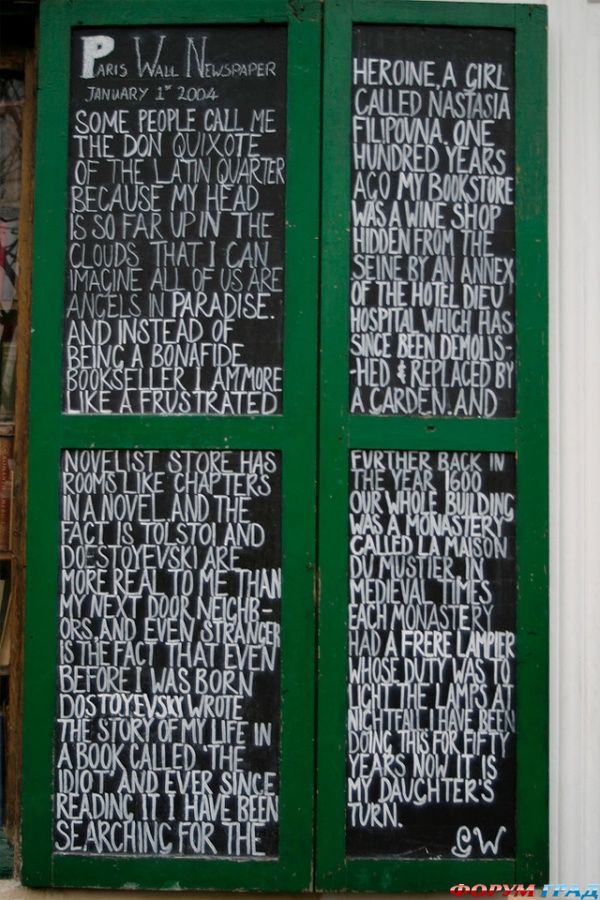 PARIS WALL NEWSPAPER
JANUARY 1ST 2004
SOME PEOPLE CALL ME
THE DON QUIXOTE
OF THE LATIN QUARTER
BECAUSE MY HEAD
IS SO FAR UP IN THE
CLOUDS THAT I CAN
IMAGINE ALL OF US ARE
ANGELS IN PARADISE.
AND INSTEAD OF
BEING A BONAFIDE
BOOKSELLER I AM MORE
LIKE A FRUSTRATED
NOVELIST STORE HAS
ROOMS LIKE CHAPTERS
IN A NOVEL AND THE
FACT IS TOLSTOI AND
DOESTOYEVSKI ARE
MORE REAL TO ME THAN
MY NEXT DOOR NEIGHB-
ORS, AND EVEN STRANGER
IS THE FACT THAT EVEN
BEFORE I WAS BORN
DOSTOYEVSKY WROTE
THE STORY OF MY LIFE IN
A BOOK CALLED 'THE
IDIOT' AND EVER SINCE
READING IT I HAVE BEEN
SEARCHING FOR THE
HEROINE, A GIRL
CALLED NASTASIA
FILIPOVNA. ONE
HUNDRED YEARS
AGO MY BOOKSTORE
WAS A WINE SHOP
HIDDEN FROM THE
SEINE BY AN ANNEX
OF THE HOTEL DIEU
HOSPITAL WHICH HAS
SINCE BEEN DEMOLIS-
-HED & REPLACED BY
A GARDEN. AND
FURTHER BACK IN
THE YEAR 1600
OUR WHOLE BUILDING
WAS A MONASTERY
CALLED LA MAISON
DU MUSTIER. IN
MEDIEVAL TIMES
EACH MONASTERY
HAD A FRERE LAMPIER
WHOSE DUTY WAS TO
LIGHT THE LAMPS AT
NIGHTFALL I HAVE BEEN
DOING THIS FOR FIFTY
YEARS NOW IT IS
MY DAUGHTER'S
TURN.
GW
ФОРУМГРАД